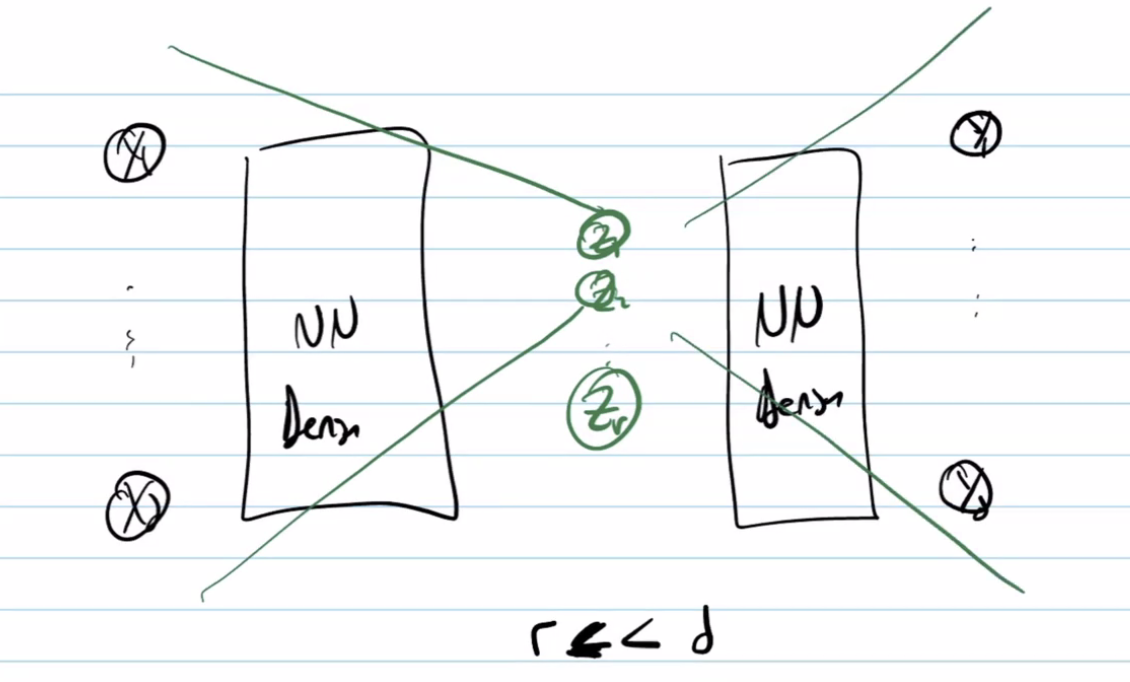 X₁
X_d
NN
Dense
Z₁
Z₂
Z_r
NN
Dense
Y₁
Y_d
r << d